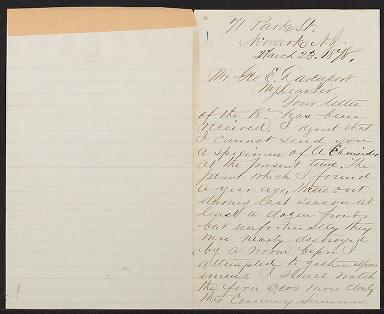 71 Park St.
Newark N.J.
March 23. 1878.
Mr Geo E. Davenport
My Dear Sir
Your letter
of the has been
received. I regret that
I cannot send you
a specimen of A.
at the present time. The
plant which I found
a year ago, threw out
during last season at
least a dozen fronds
but unfortunately they
were nearly destroyed
by a worm before I
attempted to gather speci
mens. I shall watch
the fern more closely
this coming summer